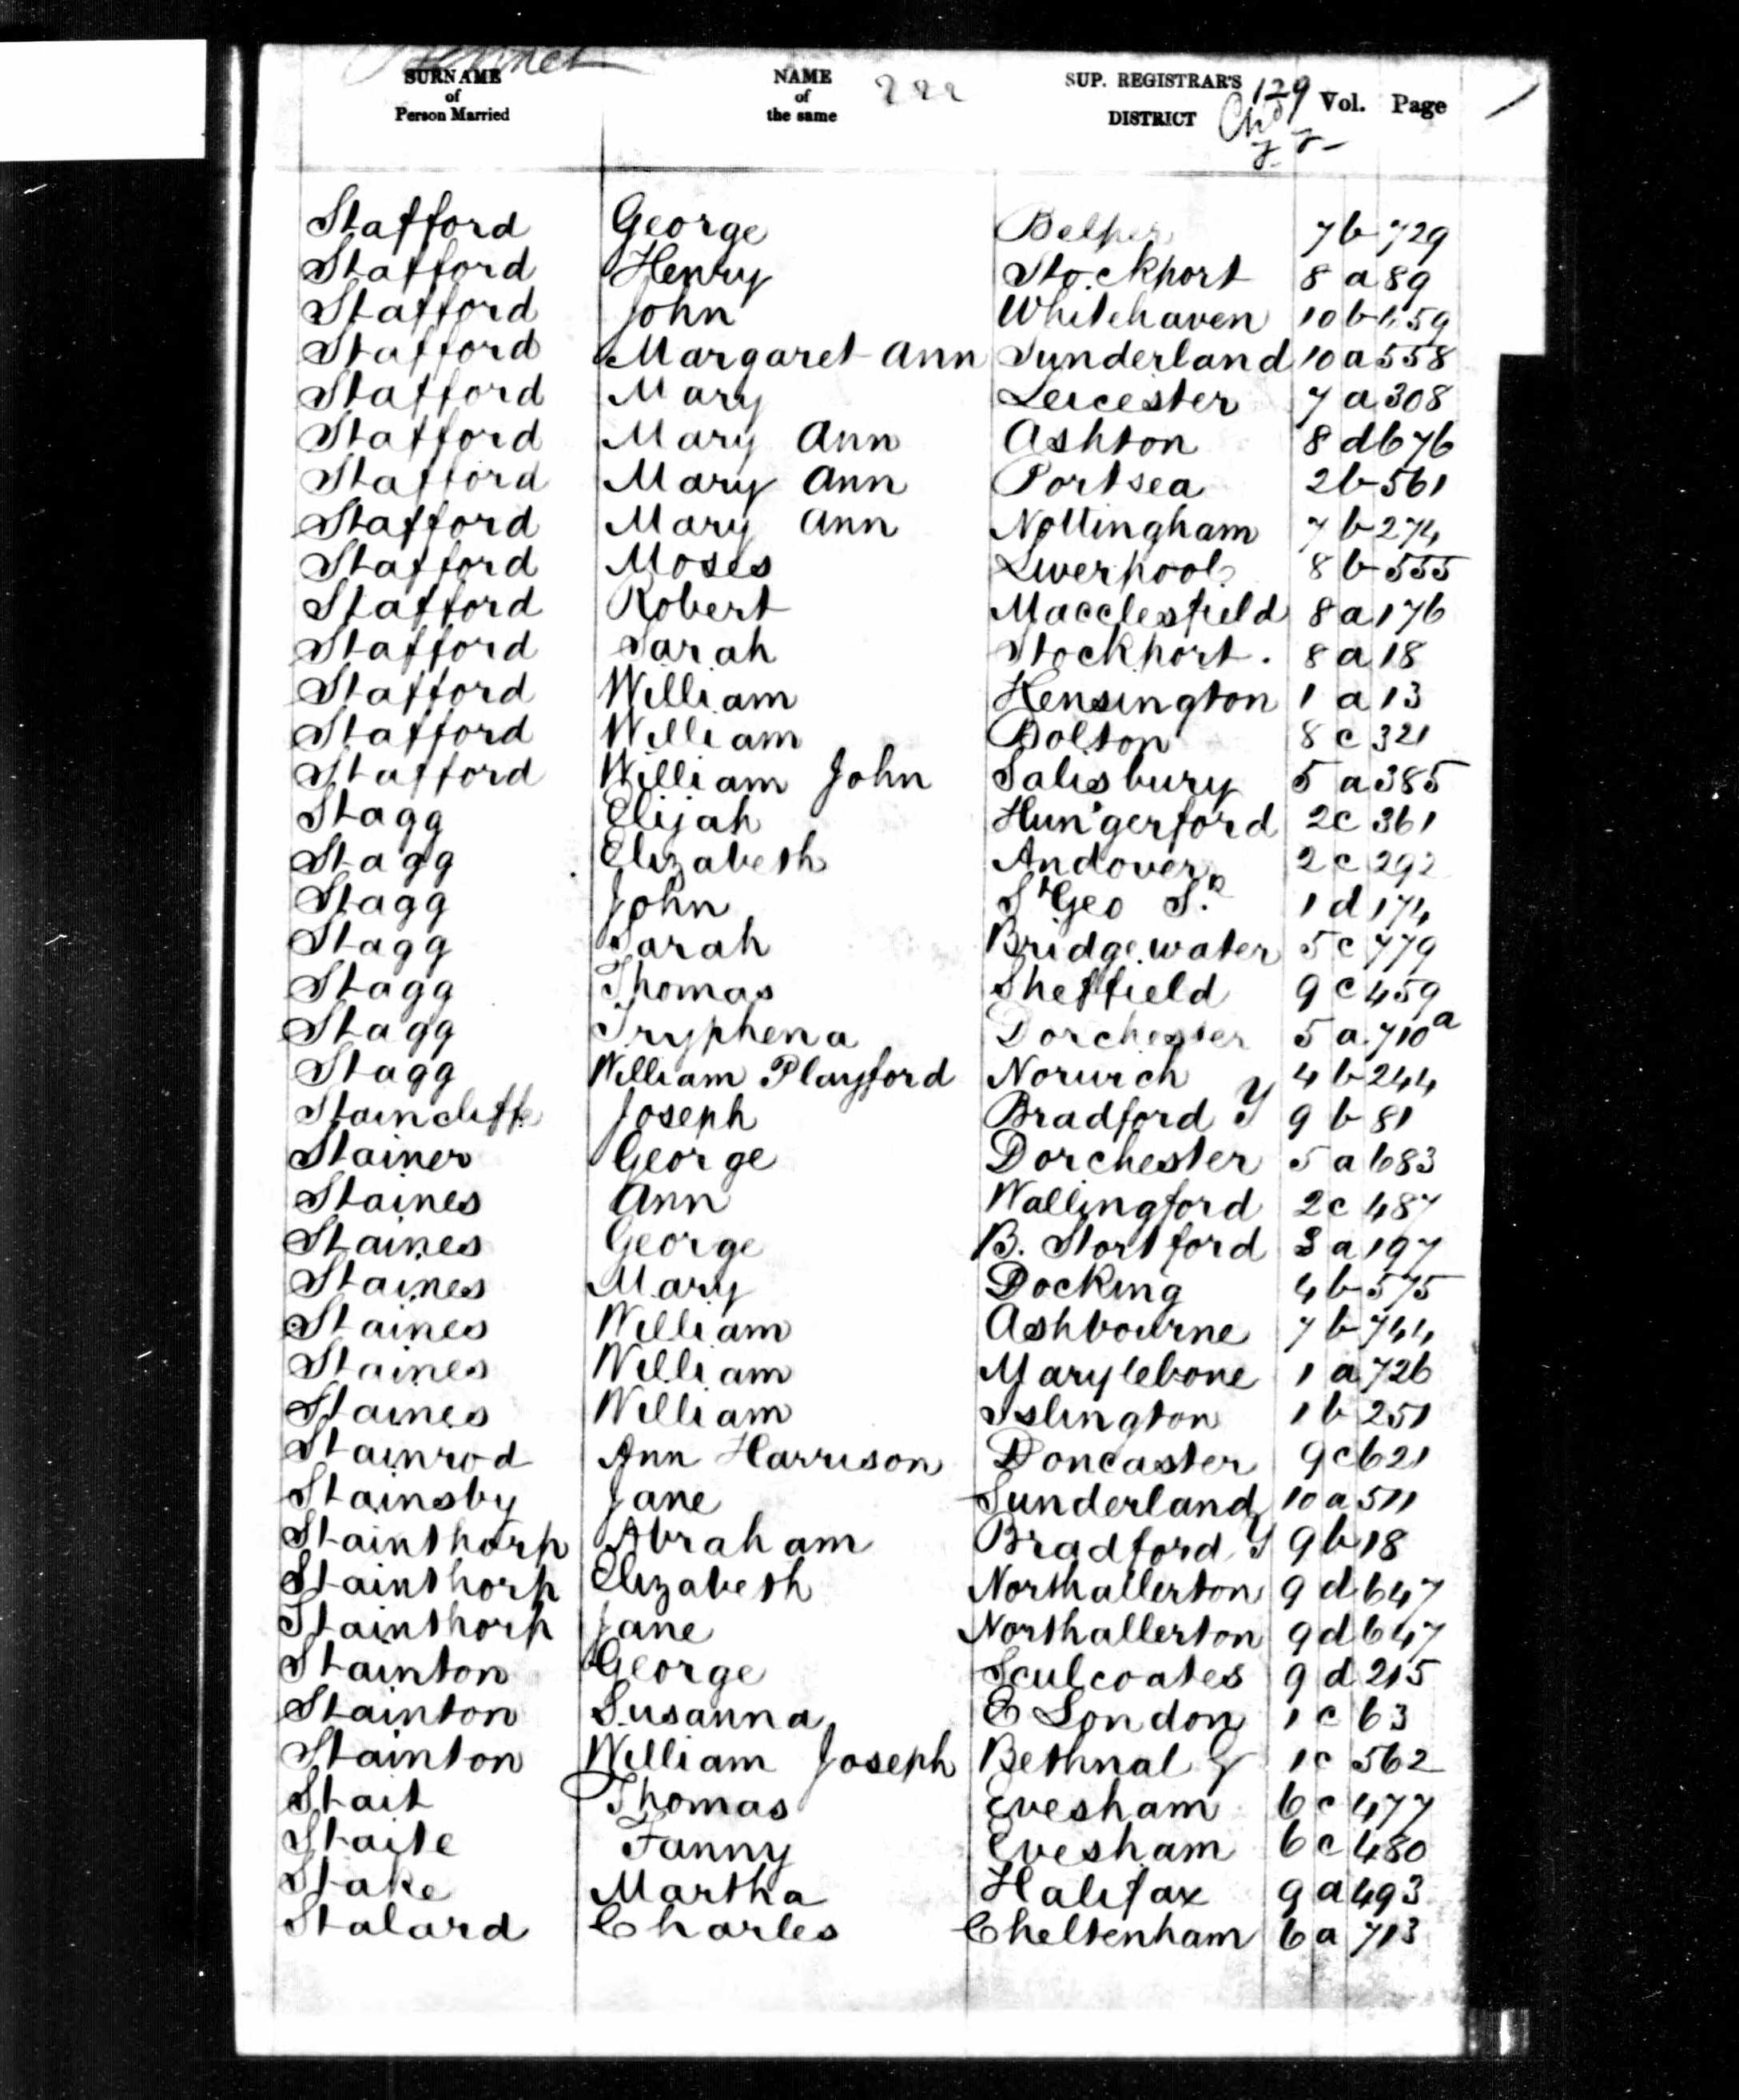 SURNAME of Person Married NAME of the same SUP. REGISTRAR'S DISTRICT Vol. Page
129
Stafford George Belper 7b 729
Stafford Henry Stockport 8 a 89
Stafford John Whitehaven 10 b 659
Stafford Margaret Ann Sunderland 10 a 558
Stafford Mary Leicester 7 a 308
Stafford Mary Ann Ashton 8 d 676
Stafford Mary Ann Portsea 2b 561
Stafford Mary Ann Nottingham 7 b 274
Stafford Moses Liverpool 8 b 555
Stafford Robert Macclesfield 8 a 176
Stafford Sarah Stockport. 8 a 18
Stafford William Kensington 1 a 13
Stafford William Bolton 8 c 321
Stafford William John Salisbury 5 a 385
Stagg Elijah Hungerford 2c 361
Stagg Elizabeth Andover 2 c 292
Stagg John St Geo S. 1 d 174
Stagg Sarah Bridgewater 5 c 779
Stagg Thomas Sheffield 9 c 459
Stagg Tryphena Dorchester 5 a 710a
Stagg William Playford Norwich 4 b 244
Staincliffe Joseph Bradford Y 9 b 81
Stainer George Dorchester 5 a 683
Staines Ann Wallingford 2c 487
Staines George B. Stortford 3 a 197
Staines Mary Docking 4 b 575
Staines William Ashbourne 7 b 744
Staines William Marylebone 1 a 726
Staines William Islington 1 b 251
Stainrod Ann Harrison Doncaster 9c 621
Stainsby Jane Sunderland 10 a 511
Stainthorp Abraham Bradford Y 9b 18
Stainthorp Elizabeth Northallerton 9 d 647
Stainthorp Jane Northallerton 9d 647
Stainton George Sculcoates 9 d 215
Stainton Susanna E London 1 c 63
Stainton William Joseph Bethnal G 1c 562
Stait Thomas Evesham 6 c 477
Staite Fanny Evesham 6 c 480
Stake Martha Halifax 9 a 493
Stalard Charles Cheltenham 6 a 713